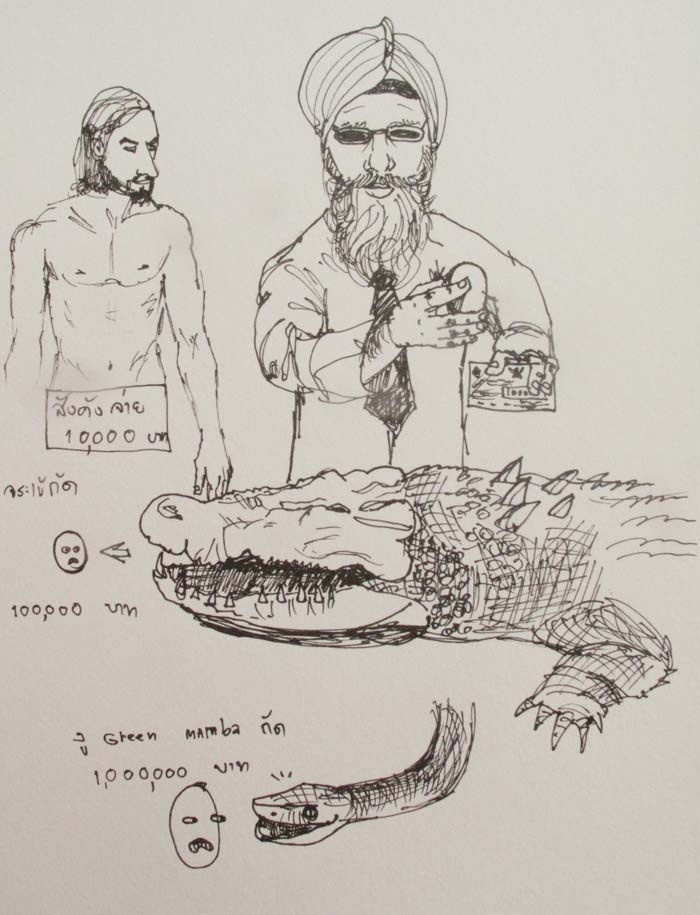 สังคัง จ่าย
10,000 บาท
จระเข้กัด
100,000 บาท
งู Green MAmba กัด
1,000,000 บาท